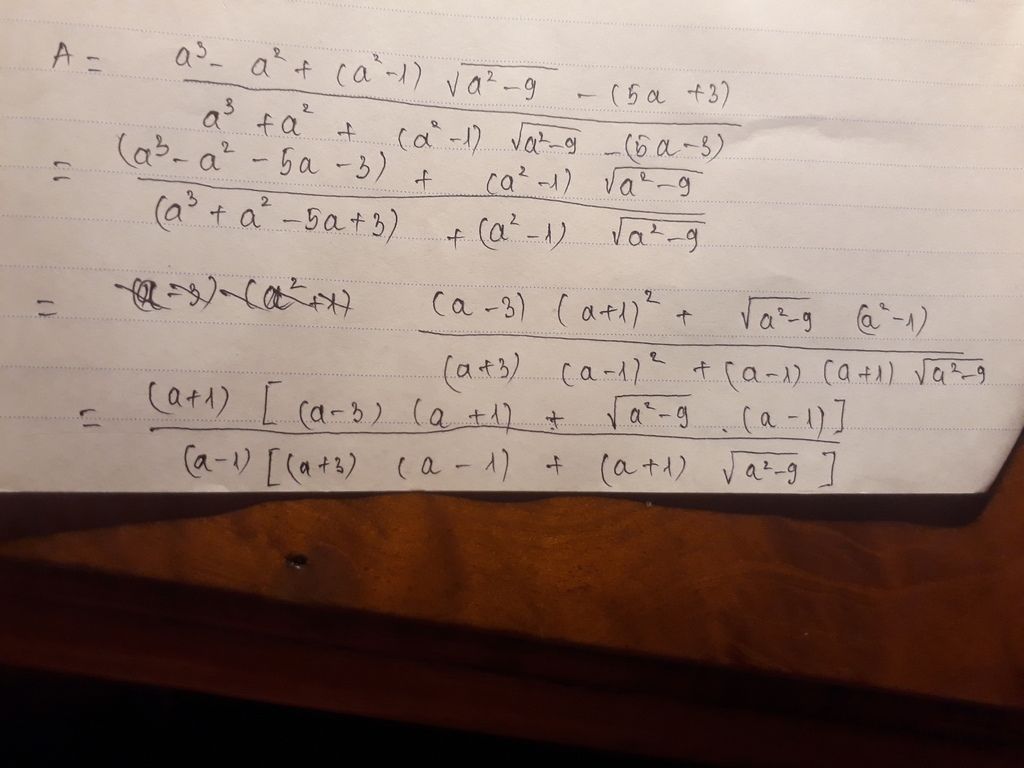 A = a³ - a² + (a² - 1) √a² - 9 - (5a + 3)
a³ + a² + (a² - 1) √a² - 9 - (5a - 3)
= (a³ - a² - 5a - 3) + (a² - 1) √a² - 9
(a³ + a² - 5a + 3) + (a² - 1) √a² - 9
= (a - 3) (a + 1)² + √a² - 9 (a² - 1)
(a + 3) (a - 1)² + (a - 1) (a + 1) √a² - 9
= (a + 1) [ (a - 3) (a + 1) + √a² - 9 . (a - 1) ]
(a - 1) [ (a + 3) (a - 1) + (a + 1) √a² - 9 ]